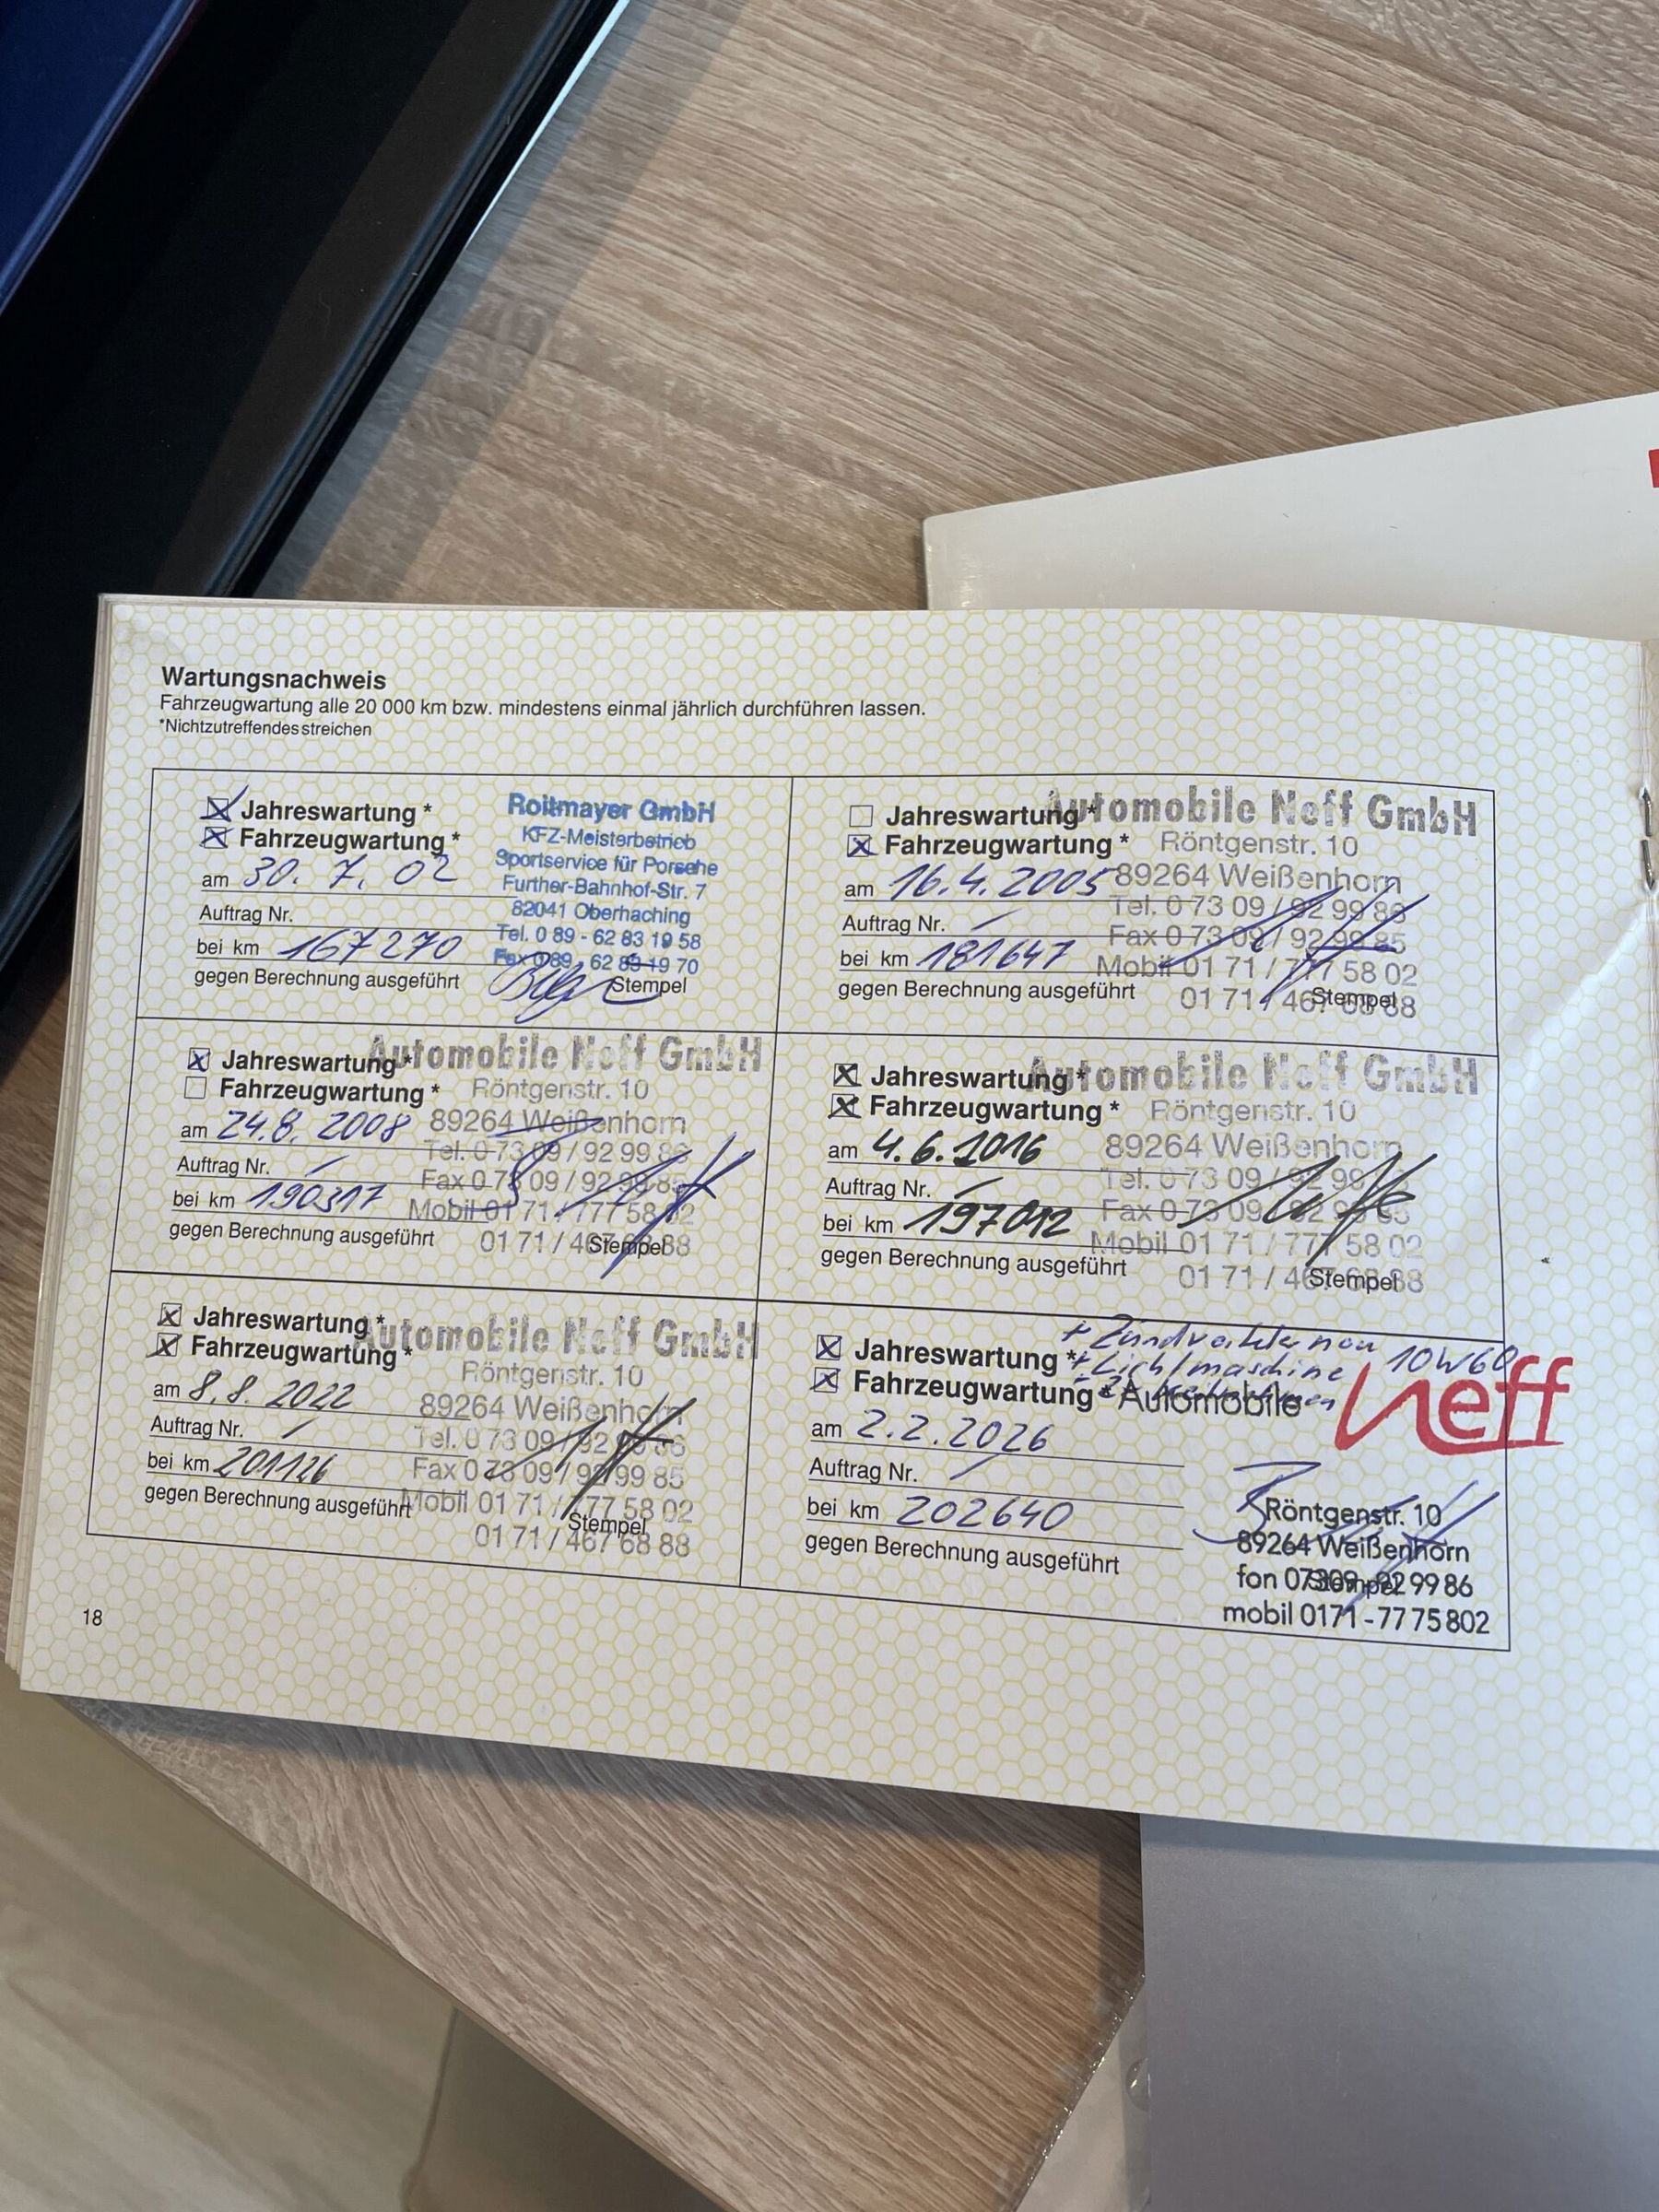 Wartungsnachweis
Fahrzeugwartung alle 20 000 km bzw. mindestens einmal jährlich durchführen lassen.
*Nichtzutreffendes streichen
Jahreswartung *
Fahrzeugwartung *
am 30. 7. 02
Auftrag Nr.
bei km 167270
gegen Berechnung ausgeführt
Roitmayer GmbH
KFZ-Meisterbetrieb
Sportservice für Porsche
Further-Bahnhof-Str. 7
82041 Oberhaching
Tel. 0 89 - 62 83 19 58
Fax 0 89 62 83 19 70
Stempel
Jahreswartung *
Fahrzeugwartung *
am 16.4.2005
Auftrag Nr.
bei km 181647
gegen Berechnung ausgeführt
Automobile Neff GmbH
Röntgenstr. 10
89264 Weißenhorn
Tel. 0 73 09 / 92 99 86
Fax 0 73 09 / 92 99 85
Mobil 01 71 / 777 58 02
01 71 / 467 68 88
Stempel
Jahreswartung *
Fahrzeugwartung *
am 24.8.2008
Auftrag Nr.
bei km 190317
gegen Berechnung ausgeführt
Automobile Neff GmbH
Röntgenstr. 10
89264 Weißenhorn
Tel. 0 73 09 / 92 99 86
Fax 0 73 09 / 92 99 85
Mobil 01 71 / 777 58 02
01 71 / 467 68 88
Stempel
Jahreswartung *
Fahrzeugwartung *
am 4.6.2016
Auftrag Nr.
bei km 197012
gegen Berechnung ausgeführt
Automobile Neff GmbH
Röntgenstr. 10
89264 Weißenhorn
Tel. 0 73 09 / 92 99
Fax 0 73 09 / 92 99 85
Mobil 01 71 / 777 58 02
01 71 / 467 68 88
Stempel
Jahreswartung *
Fahrzeugwartung *
am 8.8.2022
Auftrag Nr.
bei km 201126
gegen Berechnung ausgeführt
Automobile Neff GmbH
Röntgenstr. 10
89264 Weißenhorn
Tel. 0 73 09 / 92 99 86
Fax 0 73 09 / 92 99 85
Mobil 01 71 / 777 58 02
01 71 / 467 68 88
Stempel
Jahreswartung *
Fahrzeugwartung *
am 2.2.2026
Auftrag Nr.
bei km 202640
gegen Berechnung ausgeführt
+ Zündverteiler neu 10W60
+ Lichtmaschine
Automobile neff
Röntgenstr. 10
89264 Weißenhorn
fon 07309 - 92 99 86
mobil 0171 - 77 75 802
Stempel
18